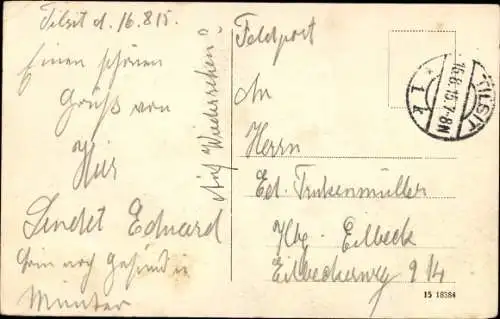 Tilsit d. 16.8.15.
Einen schönen
Gruß von
Hier
Sendet Eduard
bin noch Gesund u
Munter
Auf Wiedersehen?
Feldpost
An
Herrn
Ed. Trukenmüller
Hbg. Eilbeck
Eilbeckerweg 214
TILSIT
16.8.15.7-8N
1 k
15 18384